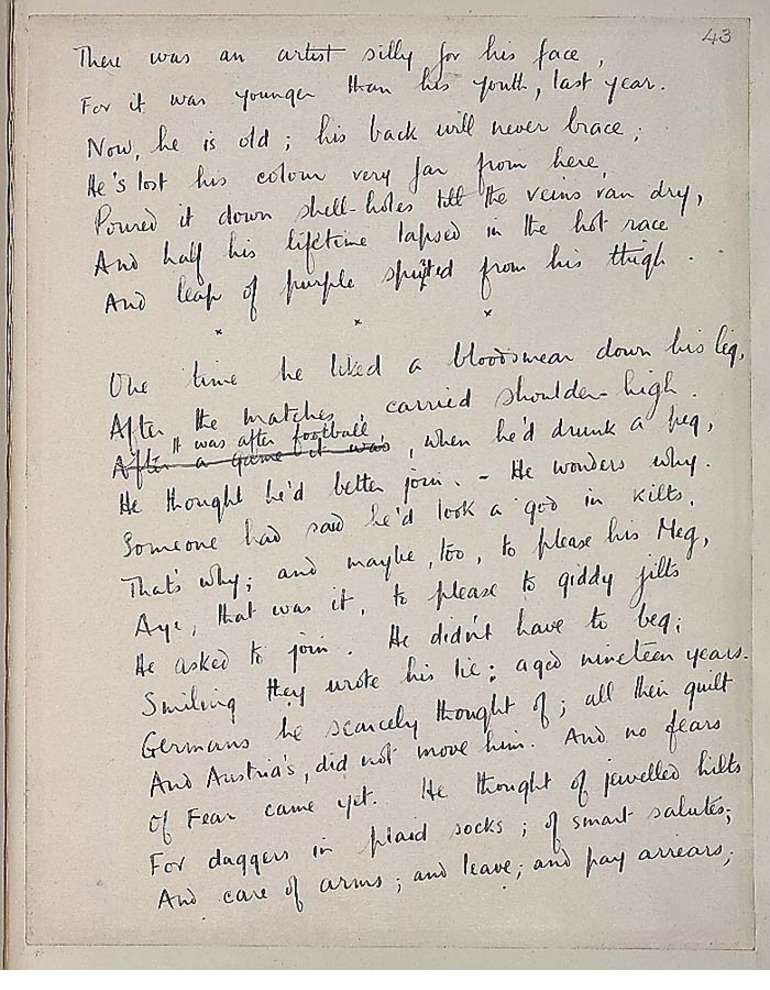 43
There was an artist silly for his face,
For it was younger than his youth, last year.
Now, he is old; his back will never brace;
He's lost his colour very far from here,
Poured it down shell-holes till the veins ran dry,
And half his lifetime lapsed in the hot race
And leap of purple spurted from his thigh.
× × ×
One time he liked a bloodsmear down his leg,
After the matches, carried shoulder-high.
It was after football,
After a game it was, when he'd drunk a peg,
He thought he'd better join. - He wonders why.
Someone had said he'd look a god in kilts,
That's why; and maybe, too, to please his Meg,
Aye, that was it, to please to giddy jilts
He asked to join. He didn't have to beg;
Smiling they wrote his lie: aged nineteen years.
Germans he scarcely thought of; all their guilt
And Austria's, did not move him. And no fears
Of Fear came yet. He thought of jewelled hilts
For daggers in plaid socks; of smart salutes;
And care of arms; and leave; and pay arrears;